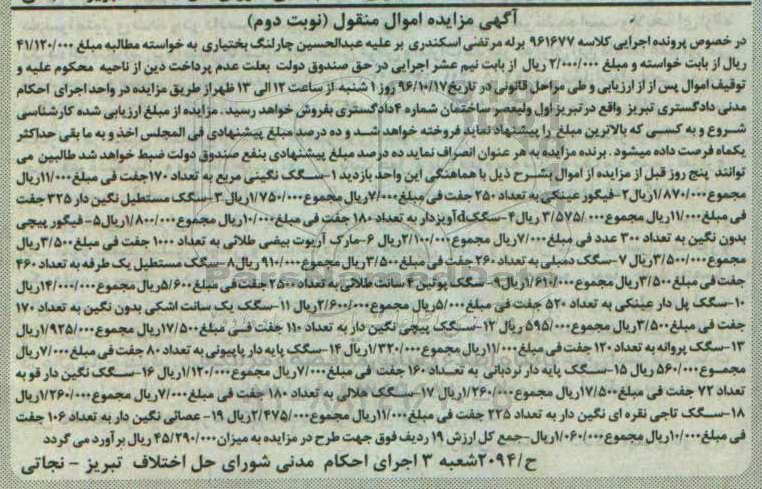 آگهی مزایده اموال منقول (نوبت دوم)
در خصوص پرونده اجرایی کلاسه ۹۶۱۶۷۷ برله مرتضی اسکندری بر علیه عبدالحسین چارلنگ بختیاری به خواسته مطالبه مبلغ ۴۱/۱۲۰/۰۰۰
ریال از بابت خواسته و مبلغ ۲/۰۰۰/۰۰۰ ریال از بابت نیم عشر اجرایی در حق صندوق دولت بعلت عدم پرداخت دین از ناحیه محکوم علیه و
توقیف اموال پس از از ارزیابی و طی مراحل قانونی در تاریخ ۹۶/۱۰/۱۷ روز ۱ شنبه از ساعت ۱۲ الی ۱۳ ظهر از طریق مزایده در واحد اجرای احکام
مدنی دادگستری تبریز واقع در تبریز اول ولیعصر ساختمان شماره ۴ دادگستری بفروش خواهد رسید. مزایده از مبلغ ارزیابی شده کارشناسی
شروع و به کسی که بالاترین مبلغ را پیشنهاد نماید فروخته خواهد شد و ده درصد مبلغ پیشنهادی فی المجلس اخذ و به ما بقی حداکثر
یکماه فرصت داده میشود. برنده مزایده به هر عنوان انصراف نماید ده درصد مبلغ پیشنهادی بنفع صندوق دولت ضبط خواهد شد طالبین می
توانند پنج روز قبل از مزایده از اموال بشرح ذیل با هماهنگی این واحد بازدید ۱-سگک نگینی مربع به تعداد ۱۷۰ جفت فی مبلغ ۱۱/۰۰۰ ریال
مجموع ۱/۸۷۰/۰۰۰ ریال ۲-فیگور عینکی به تعداد ۲۵۰ جفت فی مبلغ ۷/۰۰۰ ریال مجموع ۱/۷۵۰/۰۰۰ ریال ۳-سگک مستطیل نگین دار ۳۲۵ جفت
فی مبلغ ۱۱/۰۰۰ ریال مجموع ۳/۵۷۵/۰۰۰ ریال ۴-سگک d آویزدار به تعداد ۱۸۰ جفت فی مبلغ ۱۰/۰۰۰ ریال مجموع ۱/۸۰۰/۰۰۰ ریال ۵-فیگور پیچی
بدون نگین به تعداد ۳۰۰ عدد فی مبلغ ۷/۰۰۰ ریال مجموع ۲/۱۰۰/۰۰۰ ریال ۶-مارک آربوت بیضی طلائی به تعداد ۱۰۰۰ جفت فی مبلغ ۳/۵۰۰ ریال
مجموع ۳/۵۰۰/۰۰۰ ریال ۷-سگک دمبلی به تعداد ۲۶۰ جفت فی مبلغ ۳/۵۰۰ ریال مجموع ۹۱۰/۰۰۰ ریال ۸-سگک مستطیل یک طرفه به تعداد ۴۶۰
جفت فی مبلغ ۳/۵۰۰ ریال مجموع ۱/۶۱۰/۰۰۰ ریال ۹-سگک پوتین ۴ سانت طلائی به تعداد ۲۵۰۰ جفت فی مبلغ ۵/۶۰۰ ریال مجموع ۱۴/۰۰۰/۰۰۰ ریال
۱۰-سگک پل دار عینکی به تعداد ۵۲۰ جفت فی مبلغ ۵/۰۰۰ ریال مجموع ۲/۶۰۰/۰۰۰ ریال ۱۱-سگک یک سانت اشکی بدون نگین به تعداد ۱۷۰
جفت فی مبلغ ۳/۵۰۰ ریال مجموع ۵۹۵/۰۰۰ ریال ۱۲-سگک پیچی نگین دار به تعداد ۱۱۰ جفت فی مبلغ ۱۷/۵۰۰ ریال مجموع ۱/۹۲۵/۰۰۰ ریال
۱۳-سگک پروانه به تعداد ۱۲۰ جفت فی مبلغ ۱۱/۰۰۰ ریال مجموع ۱/۳۲۰/۰۰۰ ریال ۱۴-سگک پایه دار پاپیونی به تعداد ۸۰ جفت فی مبلغ ۷/۰۰۰ ریال
مجموع ۵۶۰/۰۰۰ ریال ۱۵-سگک پایه دار نردبانی به تعداد ۱۶۰ جفت فی مبلغ ۷/۰۰۰ ریال مجموع ۱/۱۲۰/۰۰۰ ریال ۱۶-سگک نگین دار قو به
تعداد ۷۲ جفت فی مبلغ ۱۷/۵۰۰ ریال مجموع ۱/۲۶۰/۰۰۰ ریال ۱۷-سگک هلالی به تعداد ۱۸۰ جفت فی مبلغ ۷/۰۰۰ ریال مجموع ۱/۲۶۰/۰۰۰ ریال
۱۸-سگک تاجی نقره ای نگین دار به تعداد ۲۲۵ جفت فی مبلغ ۱۱/۰۰۰ ریال مجموع ۲/۴۷۵/۰۰۰ ریال ۱۹-عصائی نگین دار به تعداد ۱۰۶ جفت
فی مبلغ ۱۰/۰۰۰ ریال مجموع ۱/۰۶۰/۰۰۰ ریال-جمع کل ارزش ۱۹ ردیف فوق جهت طرح در مزایده به میزان ۴۵/۲۹۰/۰۰۰ ریال برآورد می گردد
ح/۲۰۹۴ شعبه ۳ اجرای احکام مدنی شورای حل اختلاف تبریز - نجاتی